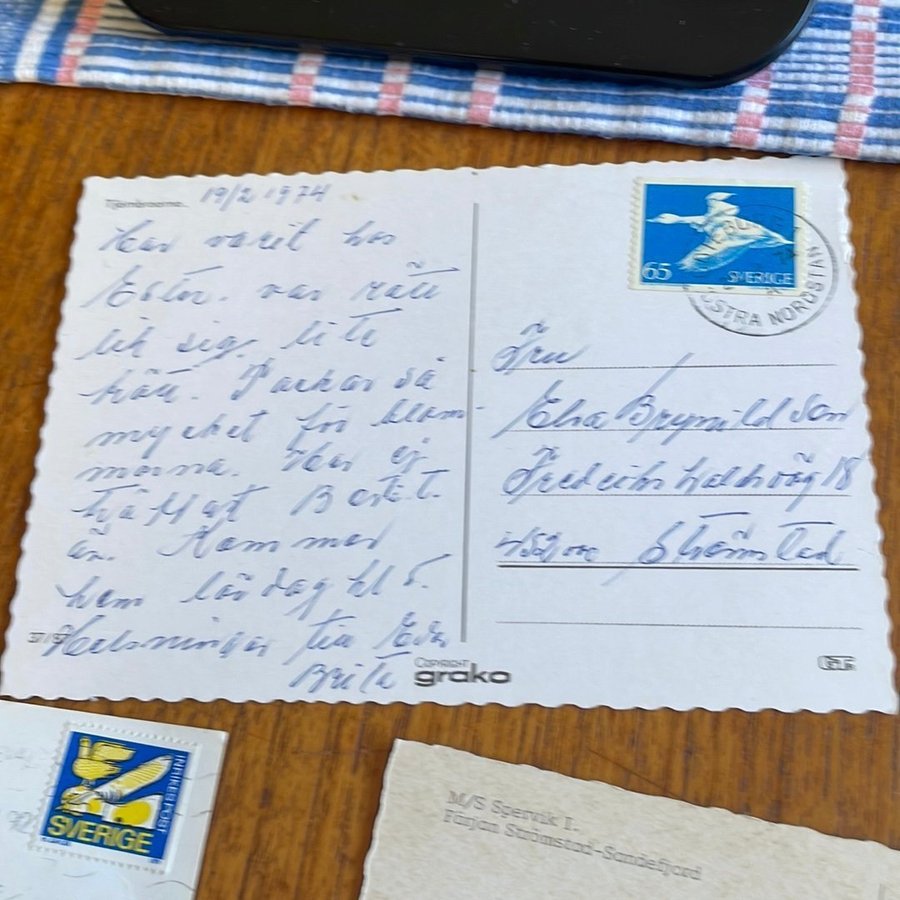 Tjörnbroarna. 19/2 1974
Har varit hos
Ester. var rätt
lik sig. lite
trött. Tackar så
mycket för blom-
morna. Har ej
träffat Bertil.
än. Kommer
hem lördag kl 5.
Helsningar till Eder
Brite
65 SVERIGE
ÖSTRA NORDSTAN
Fru
Elsa Brynildsen
Fredrikshaldsväg 18
452 00 Strömstad
COPYRIGHT
grako
INRIKESPOST
SVERIGE
M/S Spervik I.
Färjan Strömstad-Sandefjord